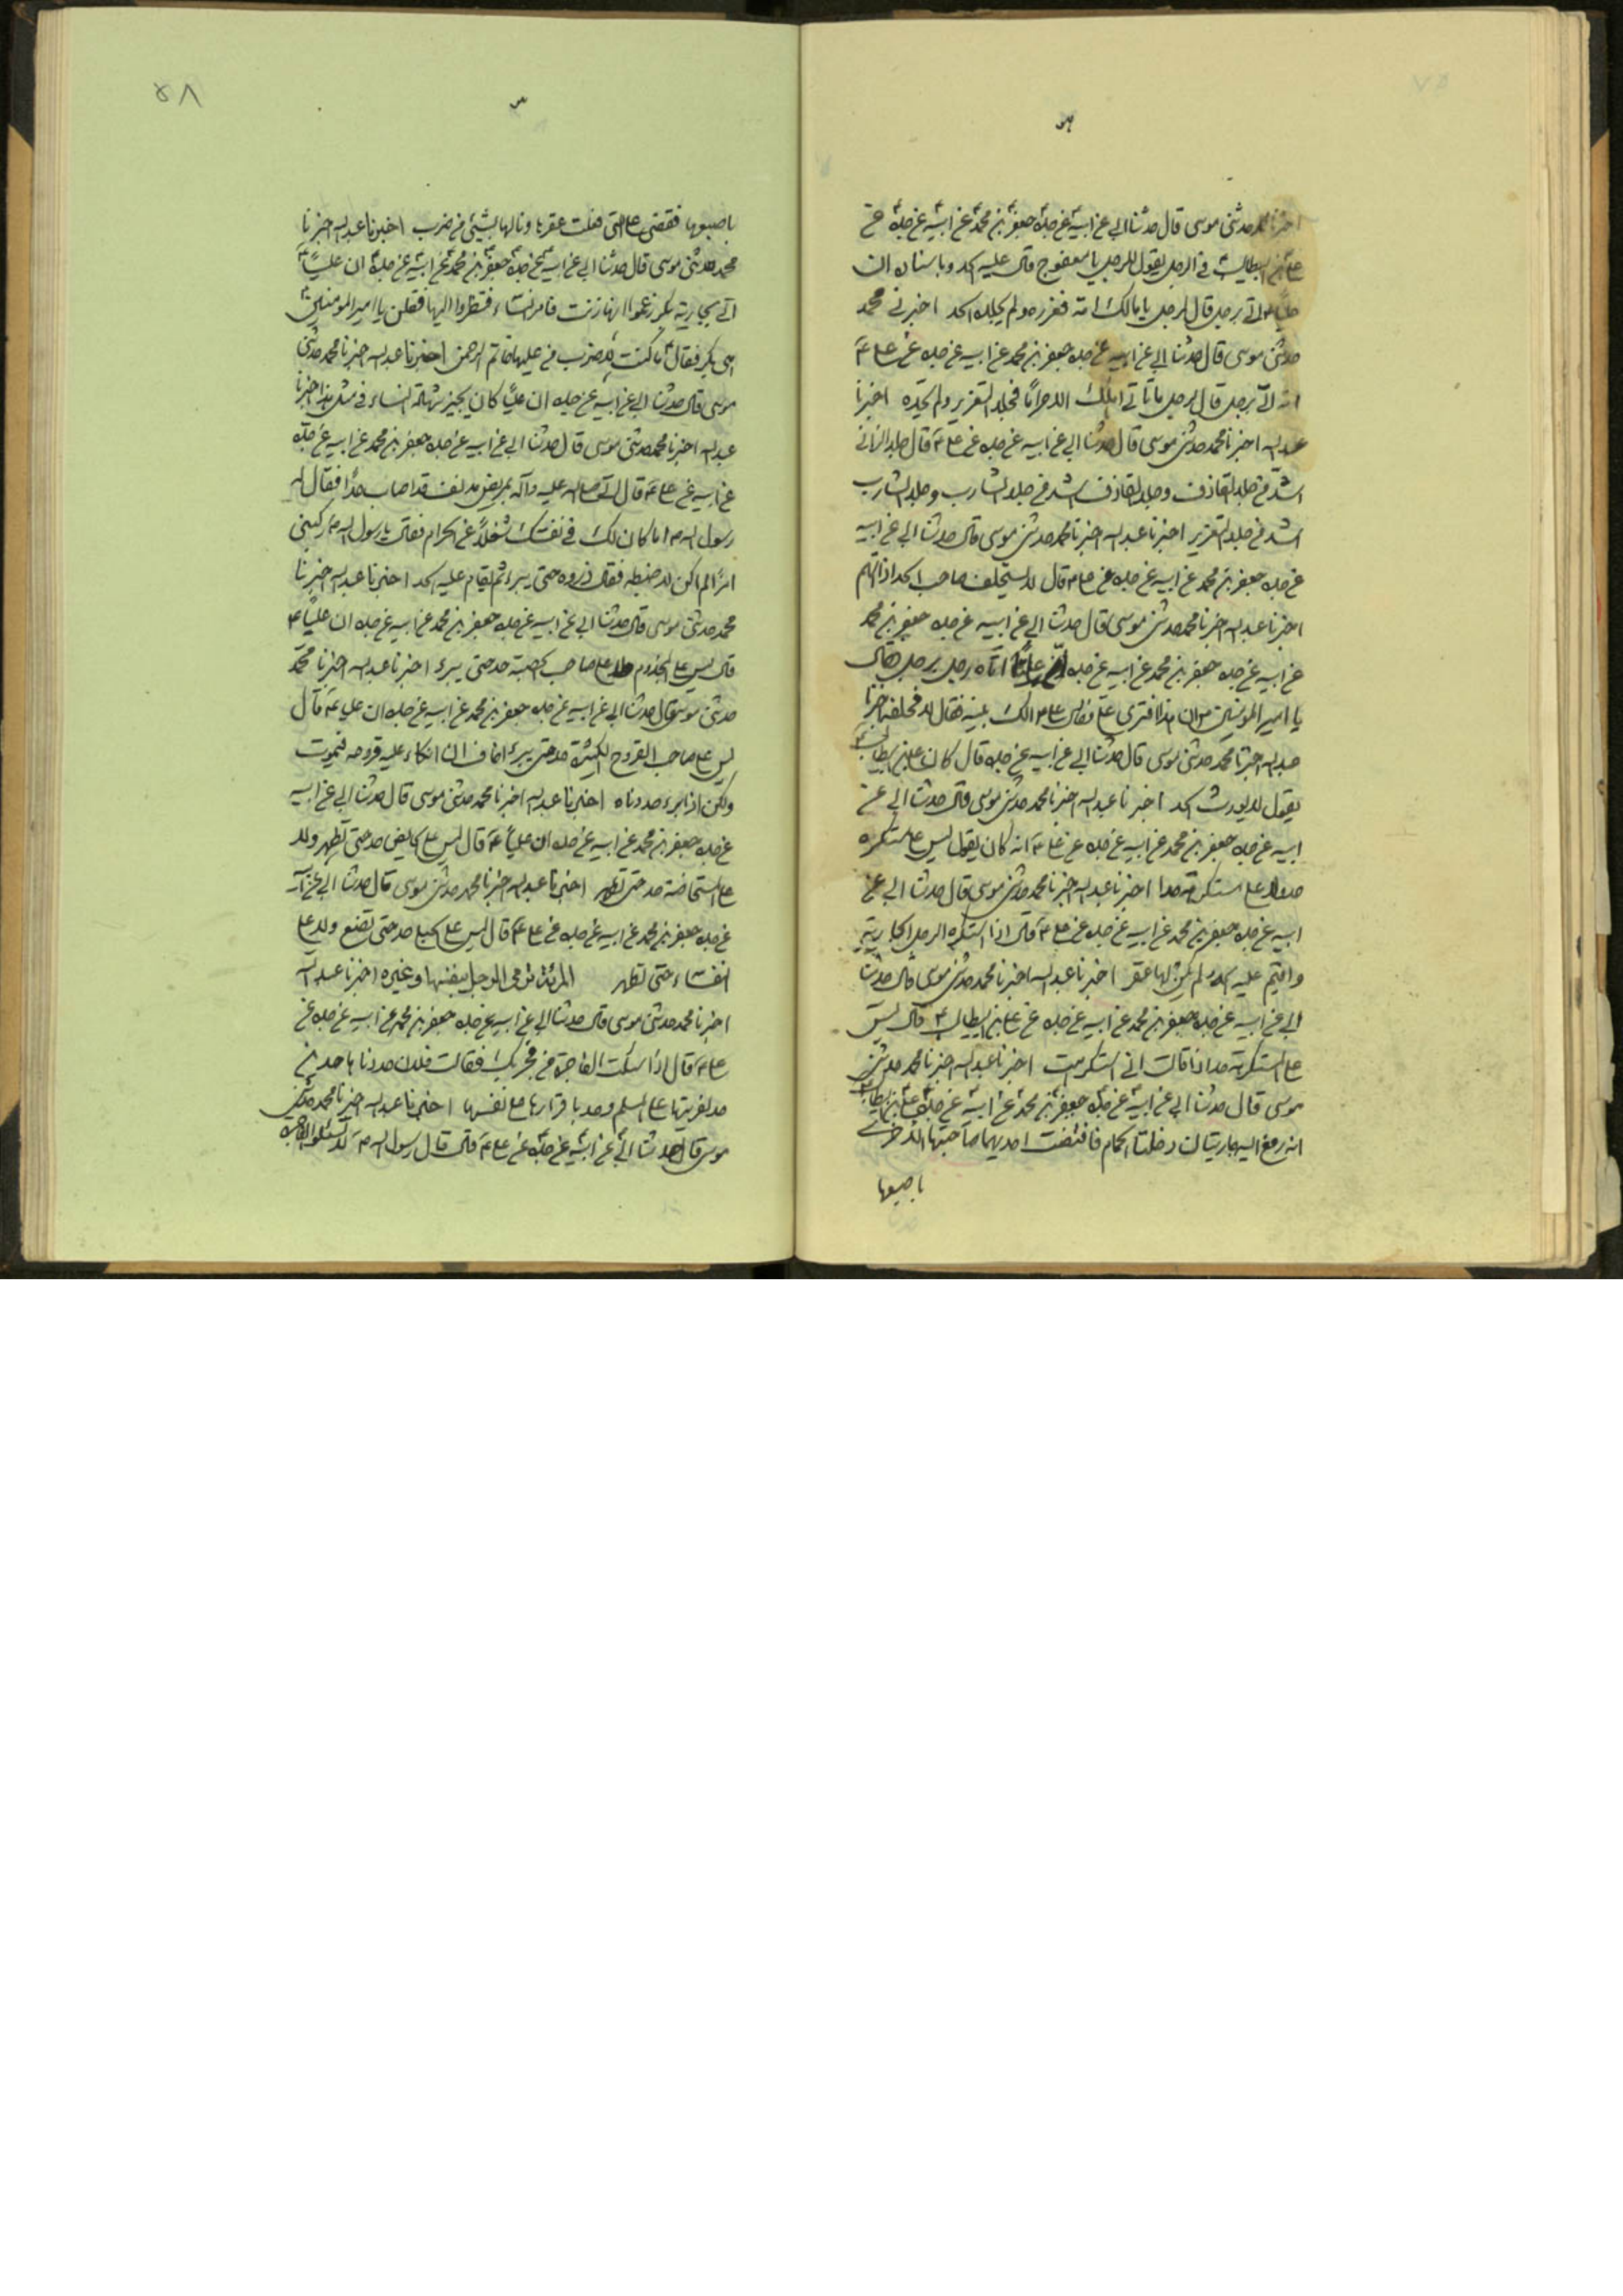 اخبرنا محمد حدثنى موسى قال حدثنا ابى عن ابيه عن جده جعفر بن محمد عن ابيه عن جده عن
على بن ابيطالب فى الرجل يقول للرجل يا معفوج قال عليه الحد وباسناده ان
عليا ع اتى برجل قال لرجل يا مالك امه فعزره ولم يجلده الحد اخبرنى محمد
حدثنى موسى قال حدثنا ابى عن ابيه عن جده جعفر بن محمد عن ابيه عن جده عن على ع
انه اتى برجل قال لرجل ما تاتى اهلك الا حراما فجلد التعزير ولم يحده اخبرنا
عبد الله اخبرنا محمد حدثنى موسى قال حدثنا ابى عن ابيه عن جده عن على ع قال جلد الزانى
اشد من جلد القاذف وجلد القاذف اشد من جلد الشارب وجلد الشارب
اشد من جلد التعزير اخبرنا عبد الله اخبرنا محمد حدثنى موسى قال حدثنا ابى عن ابيه
عن جده جعفر بن محمد عن ابيه عن جده عن على ع قال لا يستحلف صاحب الحد اذا اتهم
اخبرنا عبد الله اخبرنا محمد حدثنى موسى قال حدثنا ابى عن ابيه عن جده جعفر بن محمد
عن ابيه عن جده جعفر بن محمد عن ابيه عن جده ان عليا اتاه رجل برجل فقال
يا امير المؤمنين ان هذا افترى على فقال على ع الك بينة فقال لا فحلفه اخبرنا
عبد الله اخبرنا محمد حدثنى موسى قال حدثنا ابى عن ابيه عن جده قال كان على بن ابيطالب ع
يقول لا يورث الحد اخبرنا عبد الله اخبرنا محمد حدثنى موسى قال حدثنا ابى عن
ابيه عن جده جعفر بن محمد عن ابيه عن جده عن على ع انه كان يقول ليس على مستكره
حد ولا على مستكرهة حدا اخبرنا عبد الله اخبرنا محمد حدثنى موسى قال حدثنا ابى عن
ابيه عن جده جعفر بن محمد عن ابيه عن جده عن على ع قال اذا استكره الرجل الجارية
واقيم عليه الحد لم يكن لها عقر اخبرنا عبد الله اخبرنا محمد حدثنى موسى قال حدثنا
ابى عن ابيه عن جده جعفر بن محمد عن ابيه عن جده عن على بن ابيطالب ع قال ليس
على المستكرهة حد اذا قالت انى استكرهت اخبرنا عبد الله اخبرنا محمد حدثنى
موسى قال حدثنا ابى عن ابيه عن جده جعفر بن محمد عن ابيه عن جده عن على بن ابيطالب ع
انه رفع اليه جاريتان دخلتا الحمام فافتضت احديهما صاحبتها الاخرى
باصبعها
باصبعها فقضى على التى فعلت عقرها ونالها بشيئ من ضرب اخبرنا عبد الله اخبرنا
محمد حدثنى موسى قال حدثنا ابى عن ابيه عن جده جعفر بن محمد عن ابيه عن جده ان عليا ع
اتى بجارية بكر زعموا انها زنت فامر النساء فنظروا اليها فقلن يا امير المؤمنين
هى بكر فقال ع ما كنت لاضرب من عليها خاتم الرحمن اخبرنا عبد الله اخبرنا محمد حدثنى
موسى قال حدثنا ابى عن ابيه عن جده ان عليا كان يجيز شهادة النساء فى مثل هذا اخبرنا
عبد الله اخبرنا محمد حدثنى موسى قال حدثنا ابى عن ابيه عن جده جعفر بن محمد عن ابيه عن جده
عن ابيه عن على ع قال اتى صلى الله عليه وآله بمريض مدنف قد اصاب حدا فقال له
رسول الله ص اما كان لك فى نفسك شغلا عن الحرام فقال يا رسول الله ص ركبنى
امرا لم اكن لاضبطه فقال ذروه حتى يبرء ثم يقام عليه الحد اخبرنا عبد الله اخبرنا
محمد حدثنى موسى قال حدثنا ابى عن ابيه عن جده جعفر بن محمد عن ابيه عن جده ان عليا ع
قال ليس على المجذوم ولا على صاحب الحصبة حد حتى يبرء اخبرنا عبد الله اخبرنا محمد
حدثنى موسى قال حدثنا ابى عن ابيه عن جده جعفر بن محمد عن ابيه عن جده ان على ع قال
ليس على صاحب القروح الكثيرة حد حتى يبرء اخاف ان انكاء عليه قروحه فيموت
ولكن اذا برء حددناه اخبرنا عبد الله اخبرنا محمد حدثنى موسى قال حدثنا ابى عن ابيه
عن جده جعفر بن محمد عن ابيه عن جده ان عليا ع قال ليس على الحايض حد حتى تطهر ولا
على المستحاضة حد حتى تطهر اخبرنا عبد الله اخبرنا محمد حدثنى موسى قال حدثنا ابى عن ابيه
عن جده جعفر بن محمد عن ابيه عن جده عن على ع قال ليس على الحبلى حد حتى تضع ولا على
النفساء حتى تطهر المرئة ترمى الرجل بنفسها وغيره اخبرنا عبد الله
اخبرنا محمد حدثنى موسى قال حدثنا ابى عن ابيه عن جده جعفر بن محمد عن ابيه عن جده عن
على ع قال اذا سئلت الفاجرة من فجر بك فقالت فلان حددناها حدين
حد لفريتها على المسلم وحد باقرارها على نفسها اخبرنا عبد الله اخبرنا محمد حدثنى
موسى قال حدثنا ابى عن ابيه عن جده عن على ع قال قال رسول الله ص لا تسئلوا الفاجرة